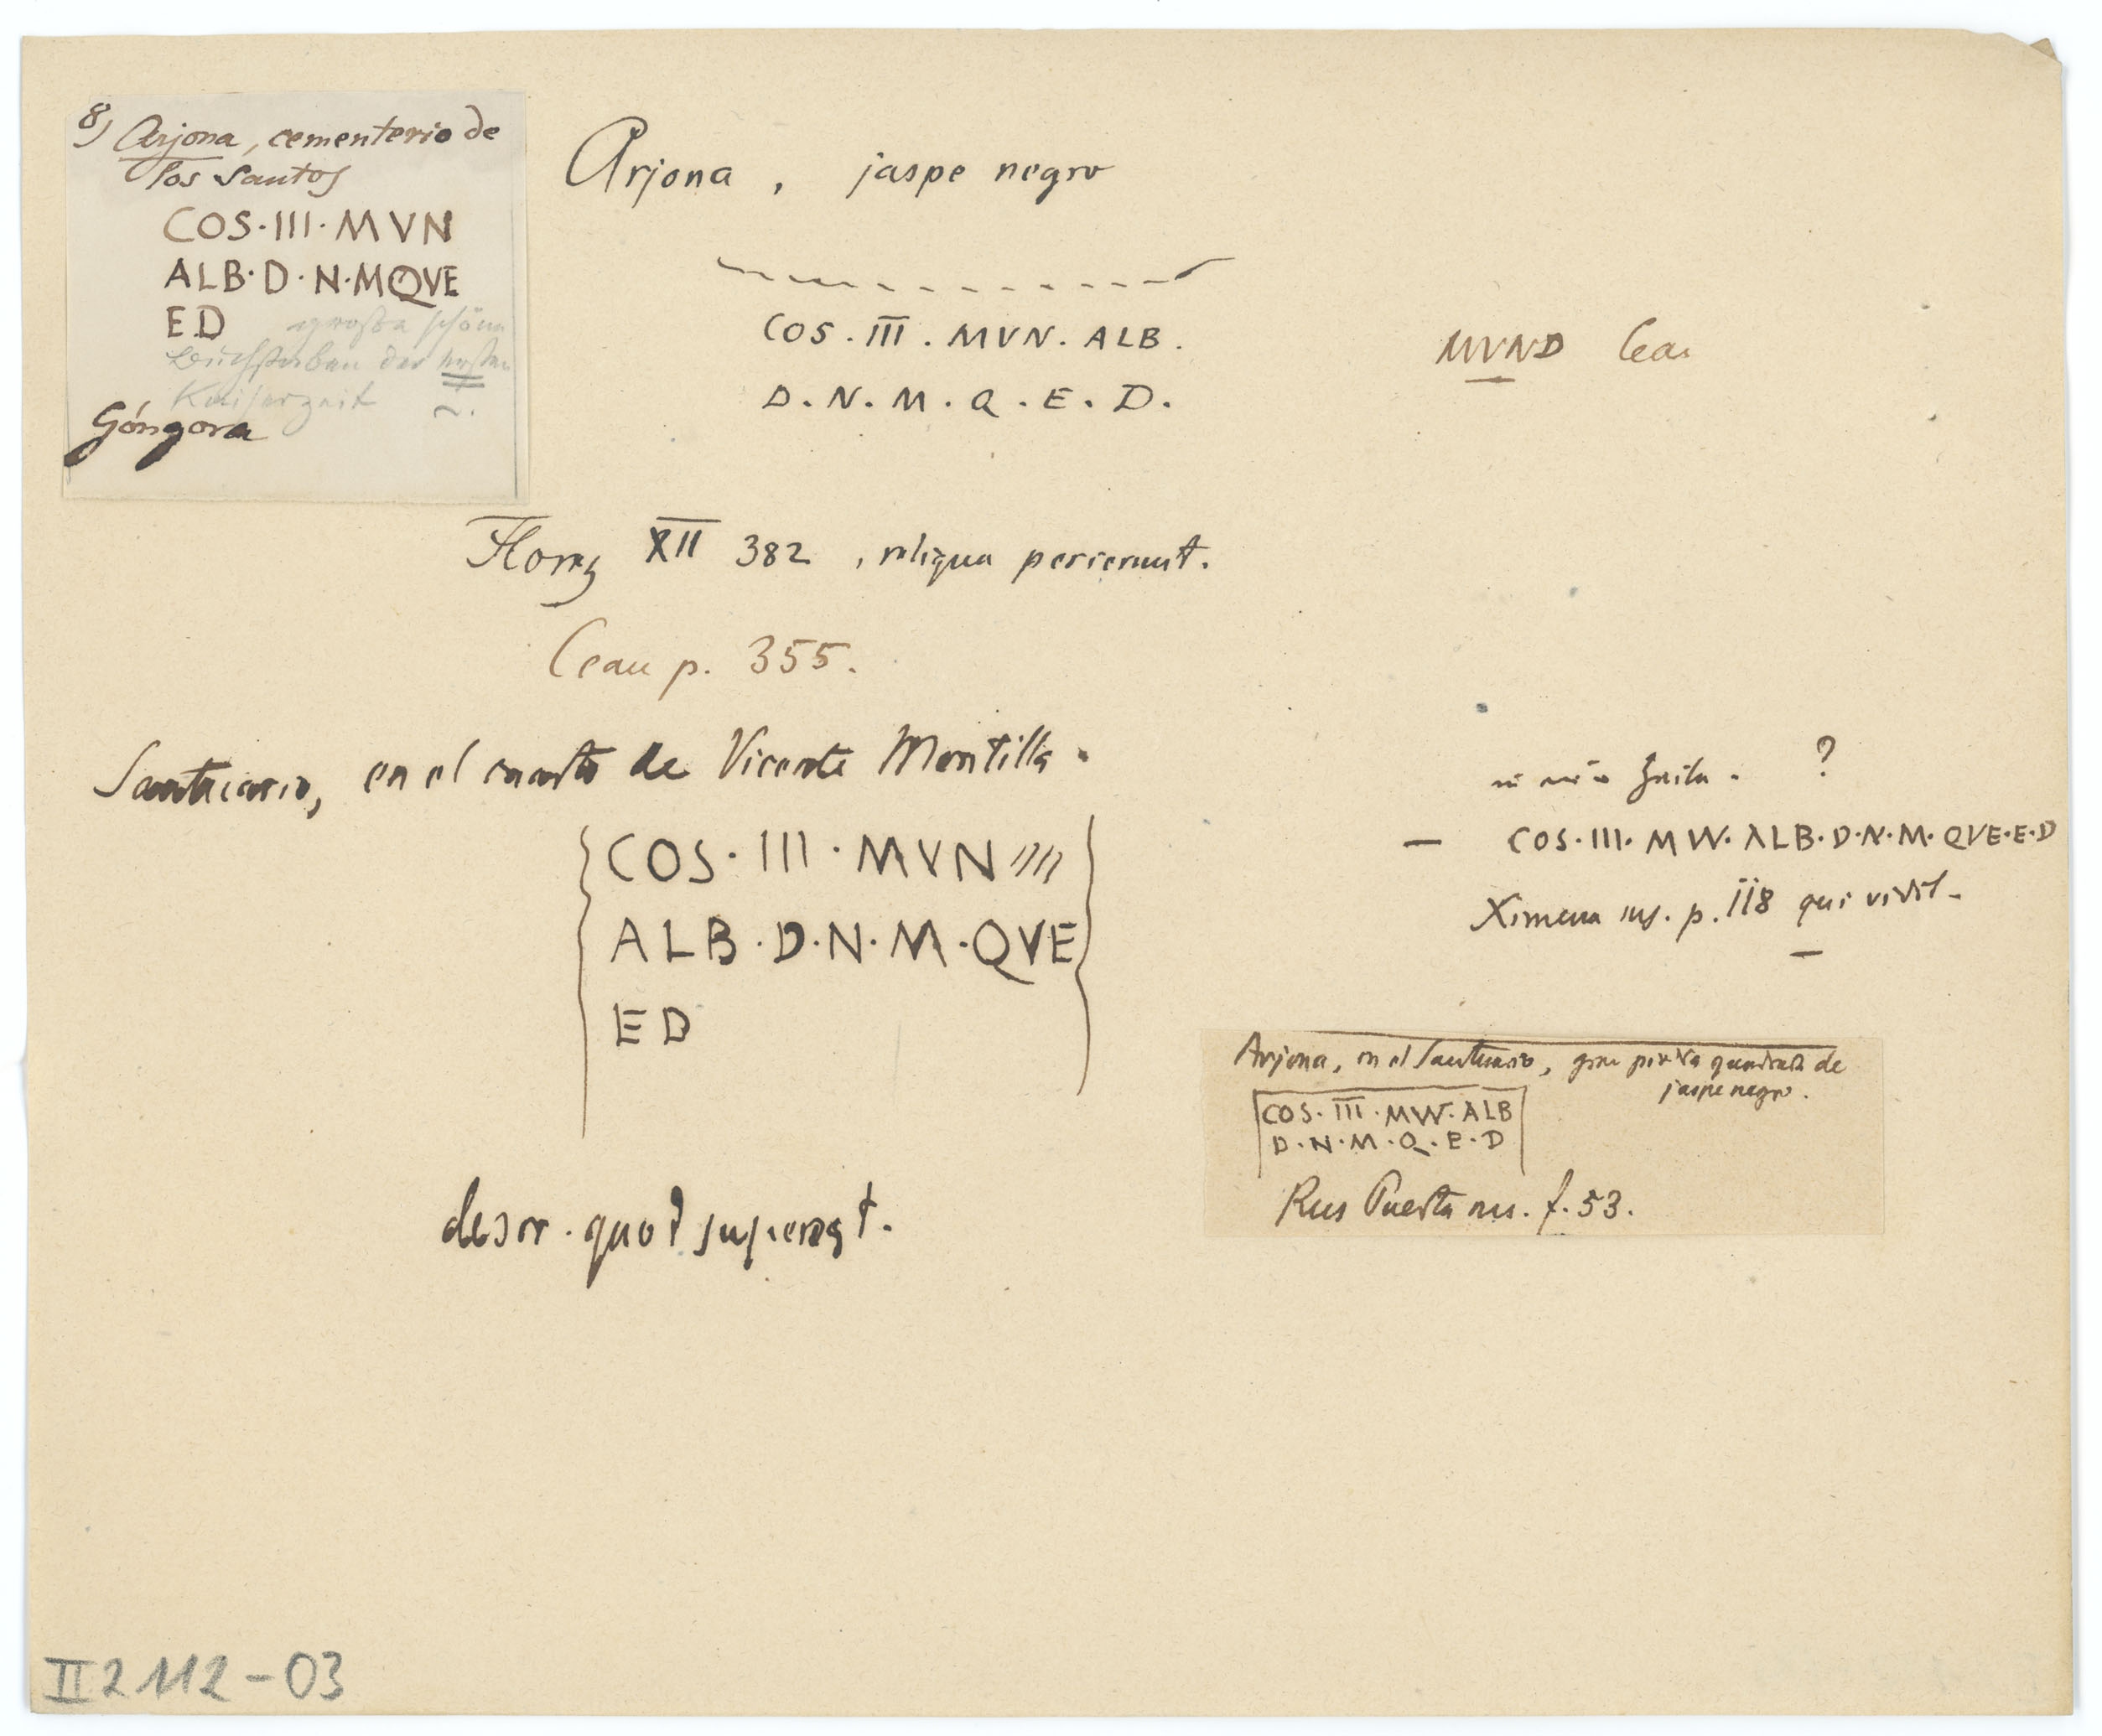 8) Arjona, cementerio de
los Santos
COS·III·MVN
ALB·D·N·MQVE
E.D große schöne
Buchstaben der ersten
Kaiserzeit
Góngora
Arjona, jaspe negro
COS. III. MVN. ALB.
D. N. M. Q. E. D.
MVND Cean
Florez XII 382, reliqua perierunt.
Cean p. 355.
Santuario, en el cuarto de Vicente Montilla.
COS·III·MVN
ALB·D·N·M·QVE
ED
descr. quod superest.
Zeile. ?
— COS·III·MW·ALB·D·N·M·QVE·E·D
Ximena ms. p. 118 qui vidit.
Arjona, en el Santuario, gran piedra quadrada de
jaspe negro.
COS·III·MW·ALB
D·N·M·Q·E·D
Rus Puerta ms. f. 53.
II 2112-03